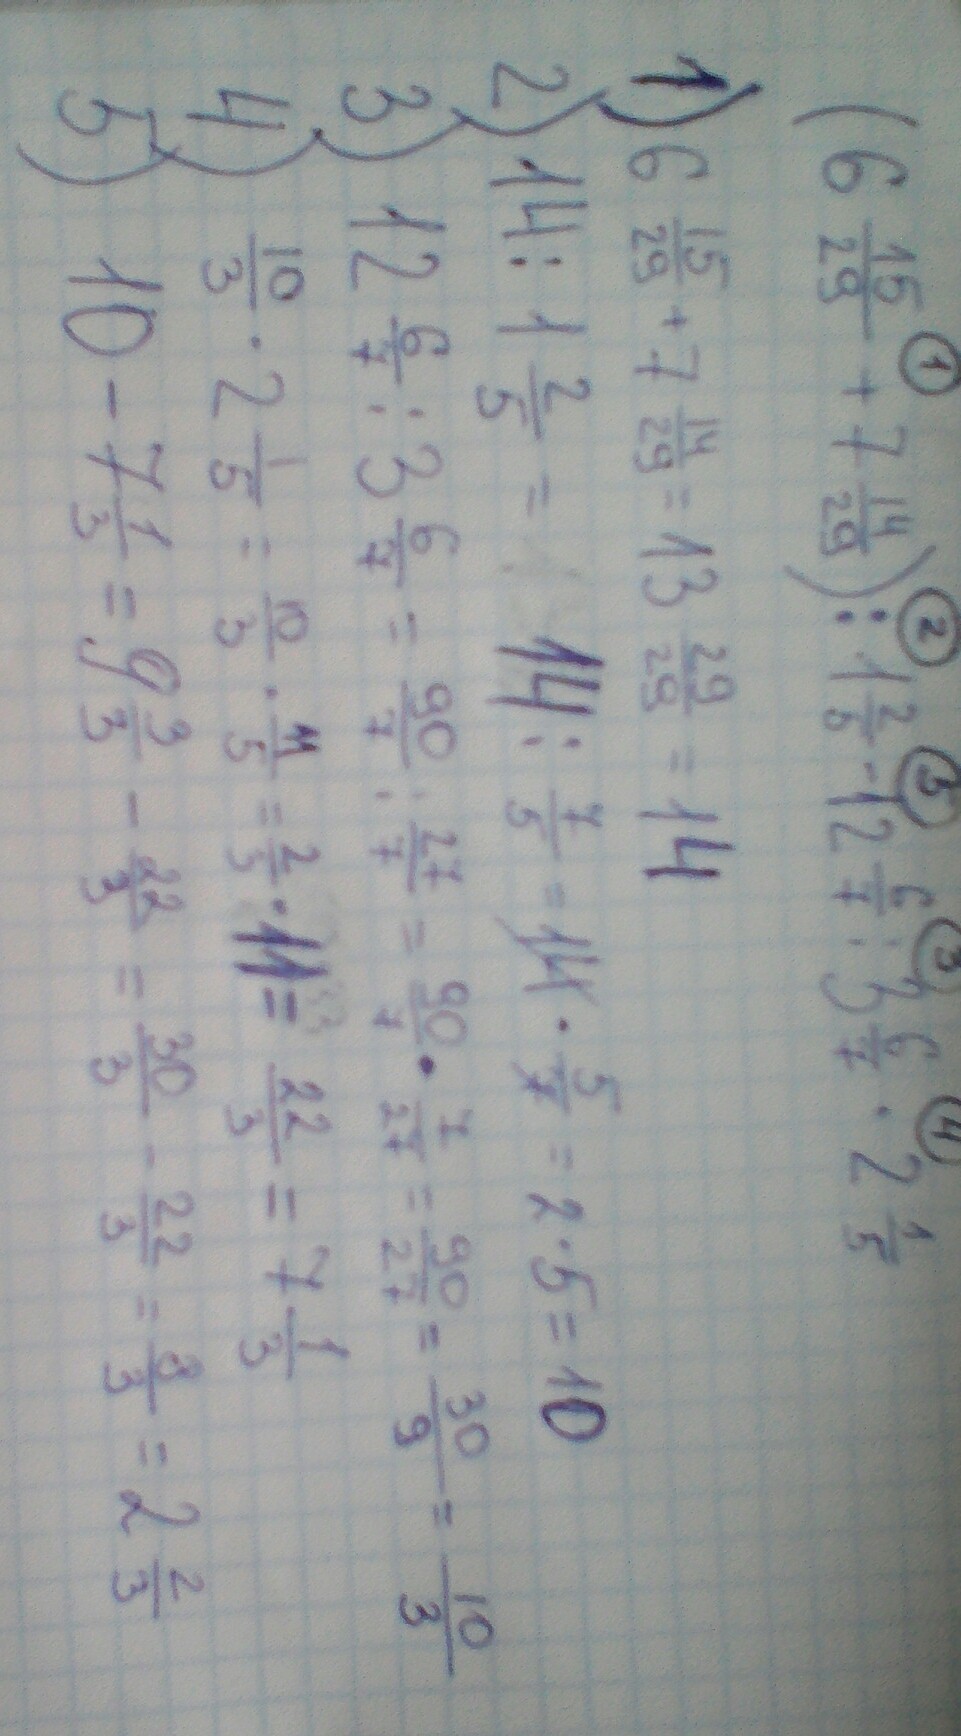 (6 15/29 + 7 14/29) : 1 2/5 - 12 6/7 : 3 6/7 · 2 1/5
① ② ⑤ ③ ④
1) 6 15/29 + 7 14/29 = 13 29/29 = 14
2) 14 : 1 2/5 = 14 : 7/5 = 14 · 5/7 = 2 · 5 = 10
3) 12 6/7 : 3 6/7 = 90/7 : 27/7 = 90/7 · 7/27 = 90/27 = 30/9 = 10/3
4) 10/3 · 2 1/5 = 10/3 · 11/5 = 2/3 · 11 = 22/3 = 7 1/3
5) 10 - 7 1/3 = 9 3/3 - 22/3 = 30/3 - 22/3 = 8/3 = 2 2/3